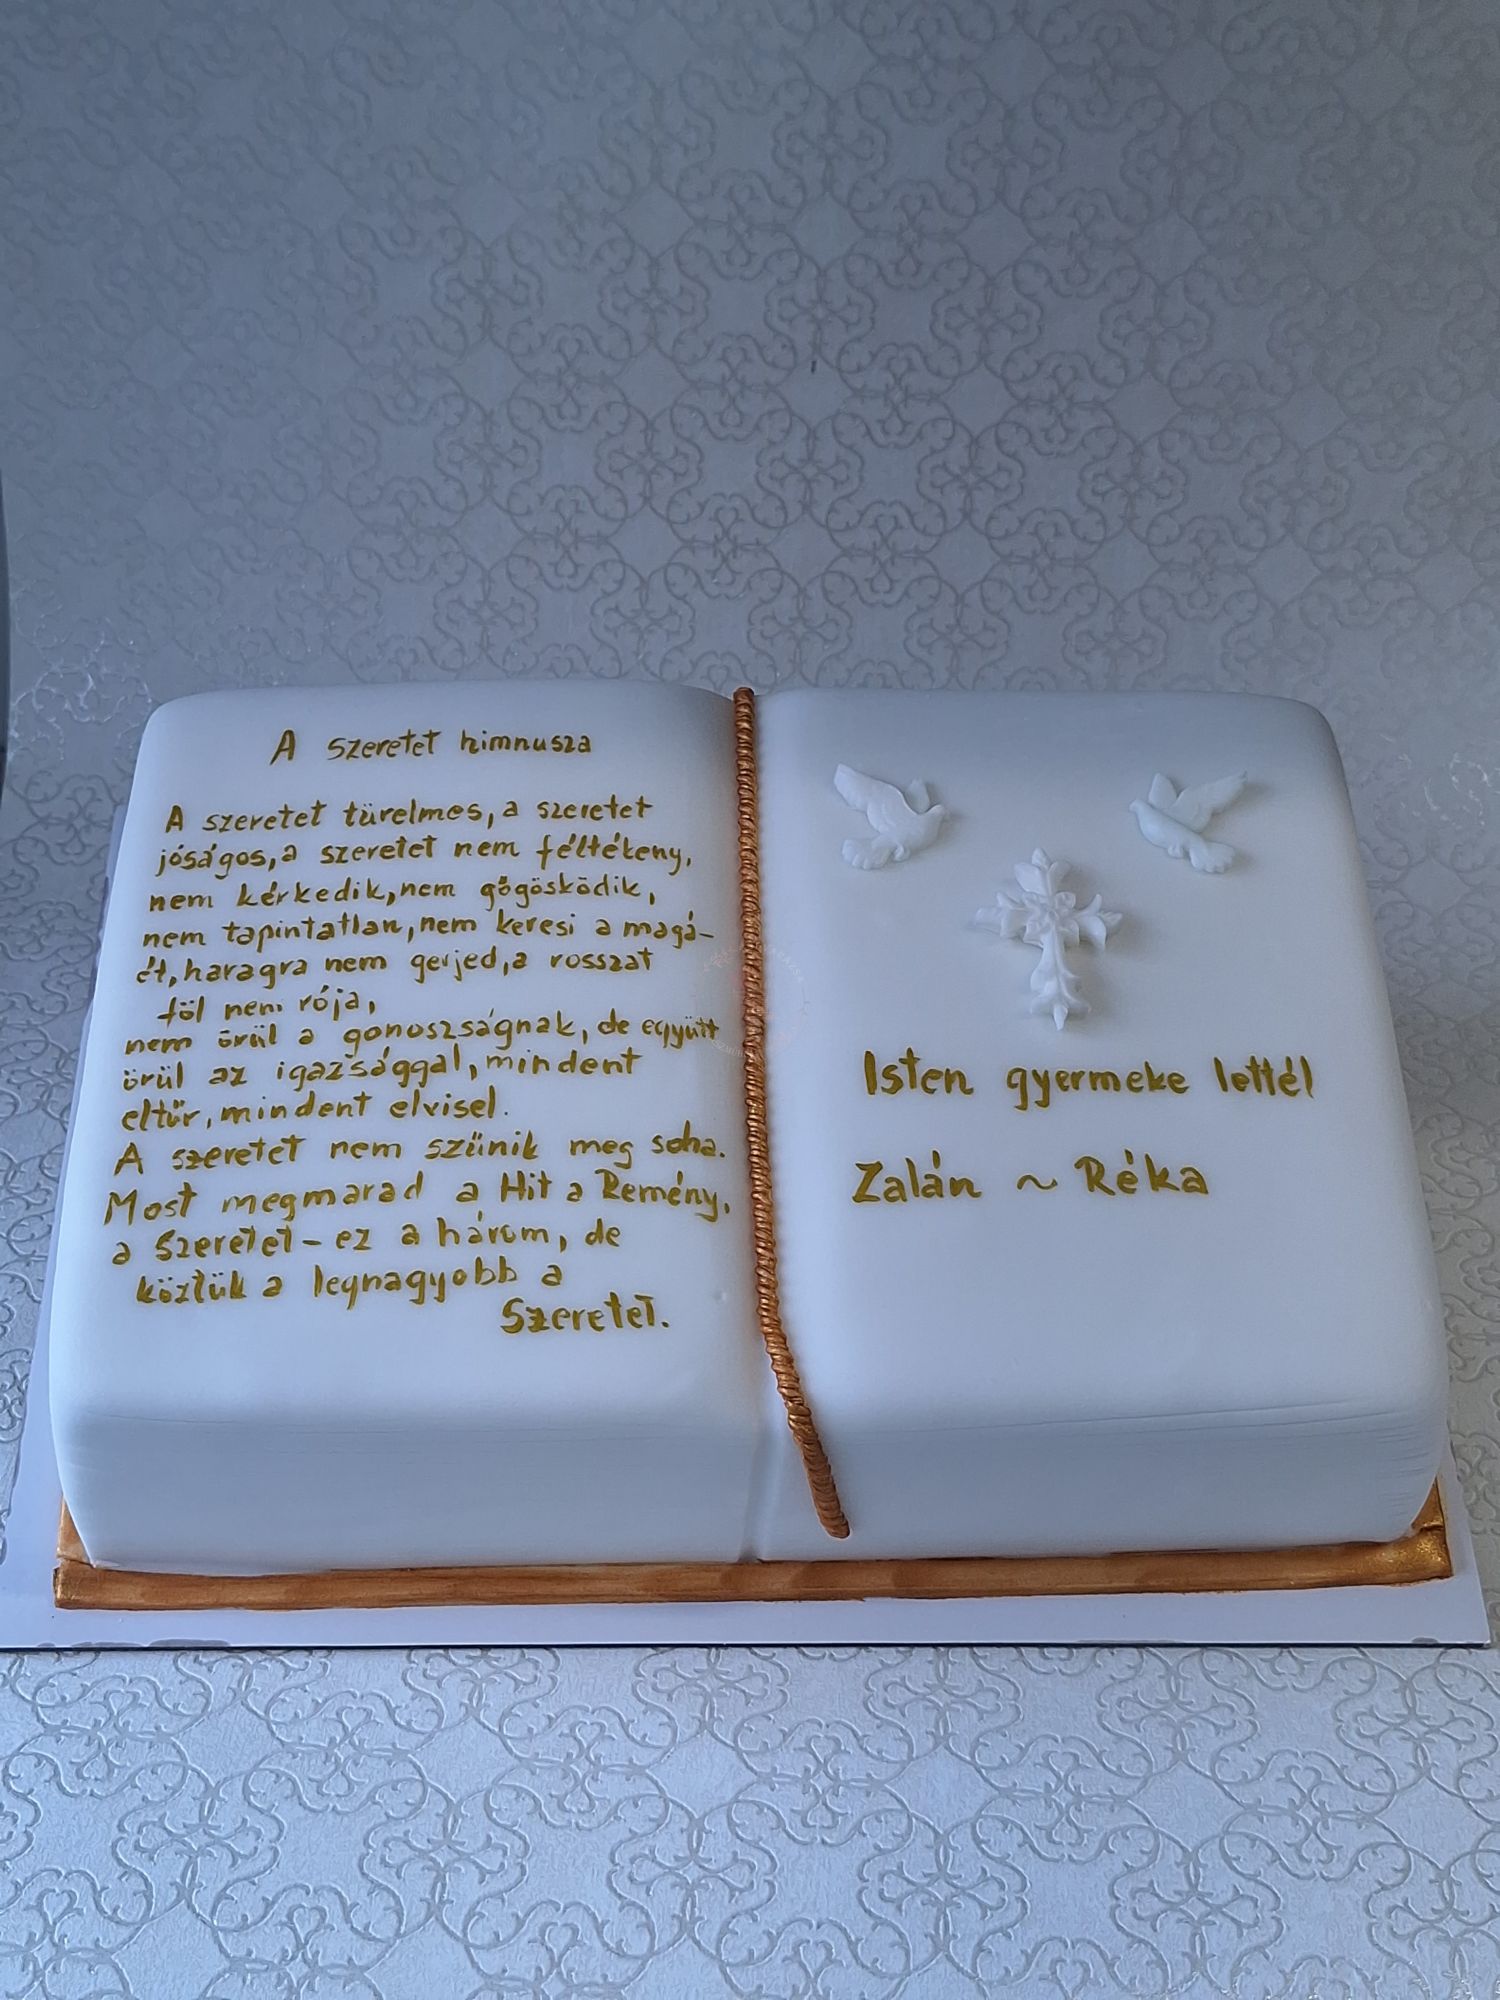 A szeretet himnusza
A szeretet türelmes, a szeretet
jóságos, a szeretet nem féltékeny,
nem kérkedik, nem gőgösködik,
nem tapintatlan, nem keresi a magá-
ét, haragra nem gerjed, a rosszat
föl nem rója,
nem örül a gonoszságnak, de együtt
örül az igazsággal, mindent
eltűr, mindent elvisel.
A szeretet nem szűnik meg soha.
Most megmarad a Hit a Remény,
a Szeretet - ez a három, de
köztük a legnagyobb a
Szeretet.
Isten gyermeke lettél
Zalán ~ Réka